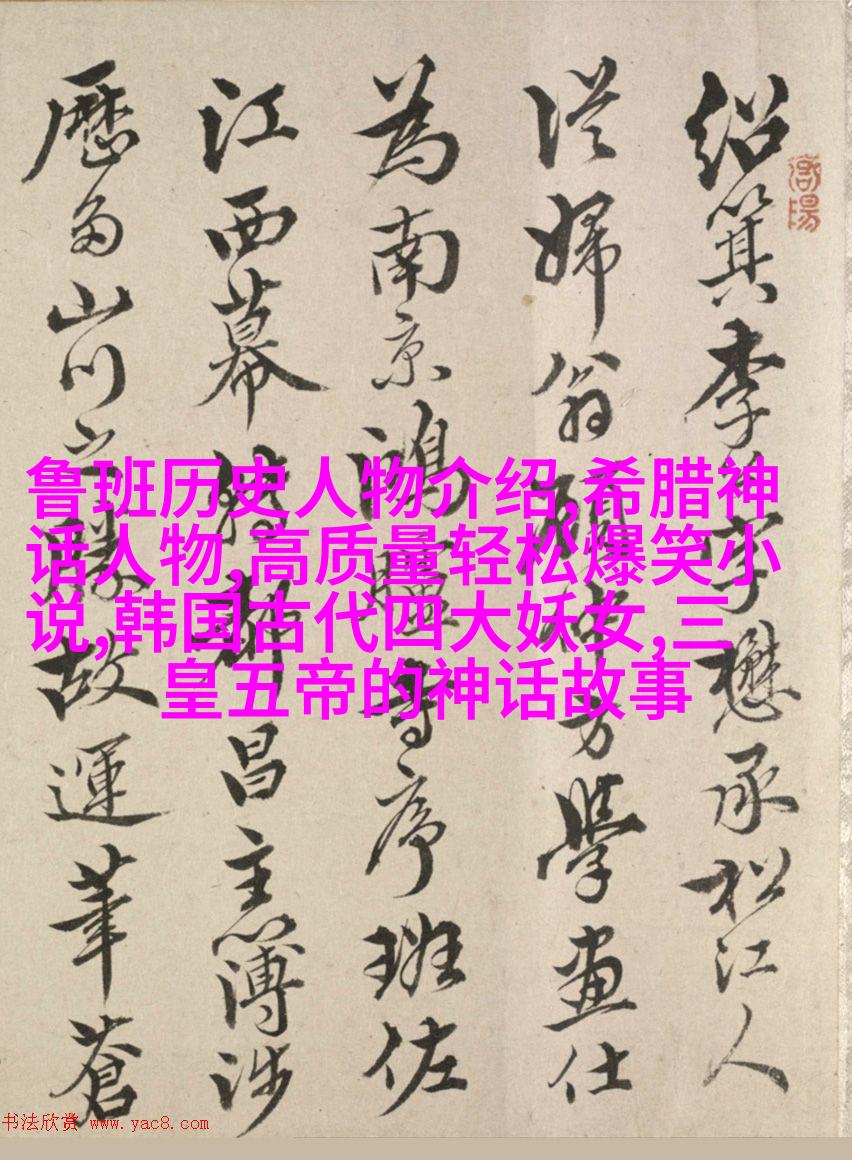 紹箕李字懋承松江人
從婦翁顧方學畫仕
為南京鴻臚寺序班佐
江西幕轉都昌主簿涉
歷多山川之勝故運筆蒼
鲁班历史人物介绍,希腊神
话人物,高质量轻松爆笑小
说,韩国古代四大妖女,三
皇五帝的神话故事
书法欣赏 www.yac8.com